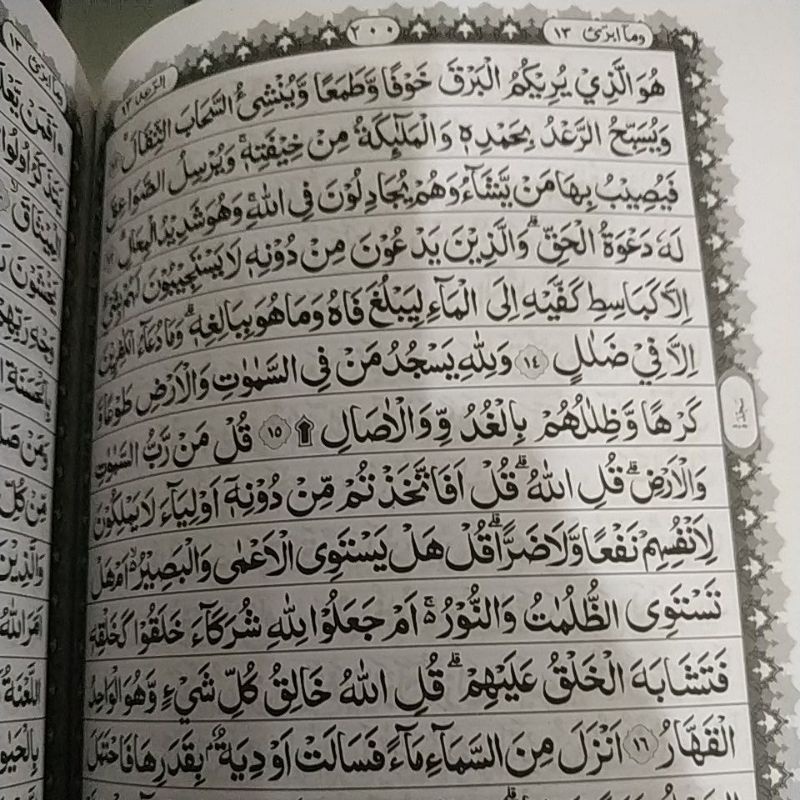 وما ابرئ ١٣
٢٠٠
الرعد ١٣
هُوَ الَّذِيْ يُرِيْكُمُ الْبَرْقَ خَوْفًا وَّطَمَعًا وَّيُنْشِئُ السَّحَابَ الثِّقَالَ
وَيُسَبِّحُ الرَّعْدُ بِحَمْدِهٖ وَالْمَلٰۤىِٕكَةُ مِنْ خِيْفَتِهٖۚ وَيُرْسِلُ الصَّوَاعِقَ
فَيُصِيْبُ بِهَا مَنْ يَّشَاۤءُ وَهُمْ يُجَادِلُوْنَ فِى اللّٰهِۚ وَهُوَ شَدِيْدُ الْمِحَالِۗ
لَهٗ دَعْوَةُ الْحَقِّۗ وَالَّذِيْنَ يَدْعُوْنَ مِنْ دُوْنِهٖ لَا يَسْتَجِيْبُوْنَ لَهُمْ بِشَيْءٍ
اِلَّا كَبَاسِطِ كَفَّيْهِ اِلَى الْمَاۤءِ لِيَبْلُغَ فَاهُ وَمَا هُوَ بِبَالِغِهٖۗ وَمَا دُعَاۤءُ الْكٰفِرِيْنَ
اِلَّا فِيْ ضَلٰلٍ ١٤ وَلِلّٰهِ يَسْجُدُ مَنْ فِى السَّمٰوٰتِ وَالْاَرْضِ طَوْعًا وَّ
كَرْهًا وَّظِلٰلُهُمْ بِالْغُدُوِّ وَالْاٰصَالِ ۩ ١٥ قُلْ مَنْ رَّبُّ السَّمٰوٰتِ
وَالْاَرْضِۗ قُلِ اللّٰهُۗ قُلْ اَفَاتَّخَذْتُمْ مِّنْ دُوْنِهٖٓ اَوْلِيَاۤءَ لَا يَمْلِكُوْنَ
لِاَنْفُسِهِمْ نَفْعًا وَّلَا ضَرًّاۗ قُلْ هَلْ يَسْتَوِى الْاَعْمٰى وَالْبَصِيْرُ ەۙ اَمْ هَلْ
تَسْتَوِى الظُّلُمٰتُ وَالنُّوْرُ ەۚ اَمْ جَعَلُوْا لِلّٰهِ شُرَكَاۤءَ خَلَقُوْا كَخَلْقِهٖ
فَتَشَابَهَ الْخَلْقُ عَلَيْهِمْۗ قُلِ اللّٰهُ خَالِقُ كُلِّ شَيْءٍ وَّهُوَ الْوَاحِدُ
الْقَهَّارُ ١٦ اَنْزَلَ مِنَ السَّمَاۤءِ مَاۤءً فَسَالَتْ اَوْدِيَةٌ ۢ بِقَدَرِهَا فَاحْتَمَلَ